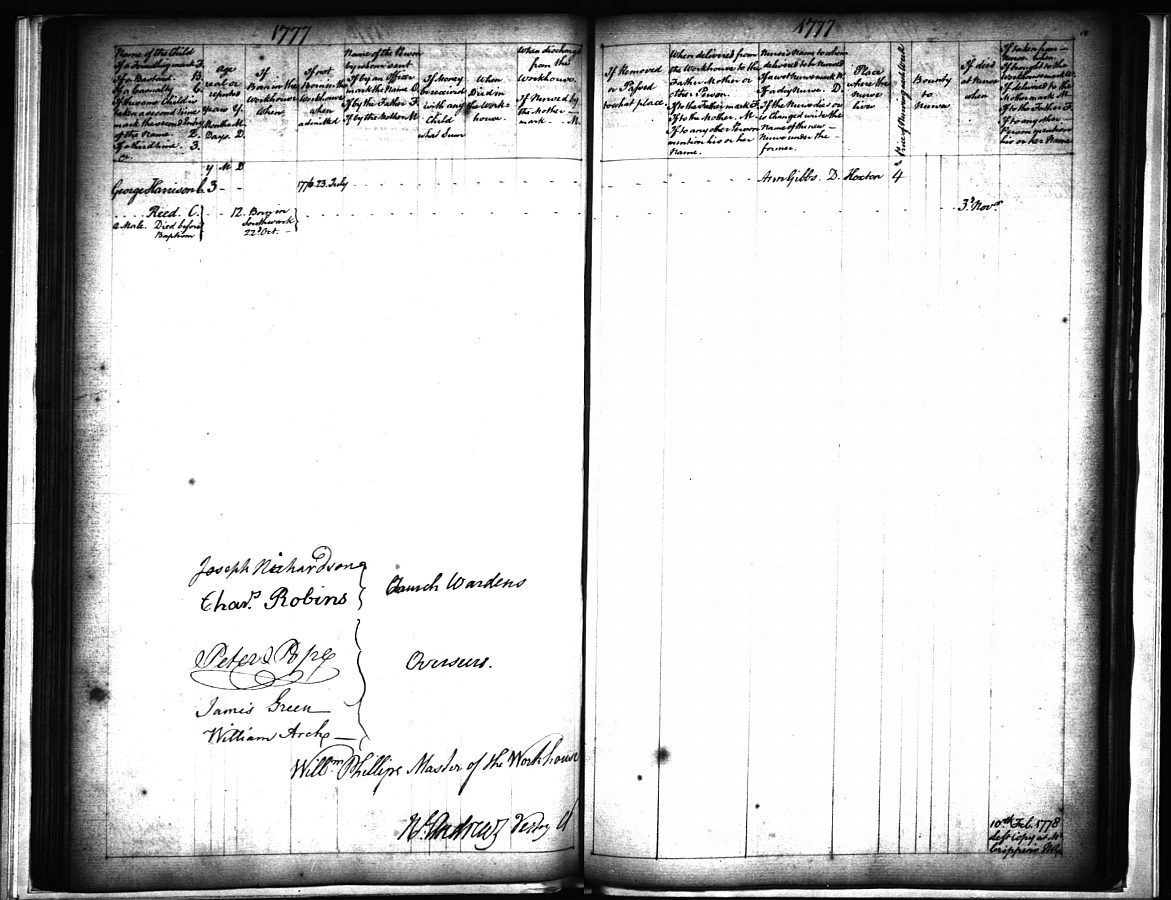 1777
Name of the Child
If a Family mark F.
If a Bastard B.
If a Casualty C.
If the same Child is
taken a second time
mark the second under
of the Name. 2.
If a third time. 3.
&c.
Age
real or
reputed
Years Y.
Months M.
Days. D.
If
Born in the
Workhouse
When
If not
Born in the
Workhouse
when
admitted
Name of the Person
by whom sent
If by an Officer
mark the Name O.
If by the Father F.
If by the Mother M
If Money
be received
with any
Child
what Sum
When
Died in
the Work=
house.
When discharged
from the
Workhouse.
If Nursed by
the Mother
mark - M.
Y M D
George Harrison C. 3 - 1776 23. July
Reed. C. 12. Born in
a Male. Died before Southwark
Baptism 22d Oct.
Joseph Richardson
Chas. Robins
Church Wardens
Peter Pope
Overseers.
James Green
William Arch
Willm Phillips Master of the Workhouse
Andrews Vestry Cl
1777
If Removed
or Passed
to what place.
When delivered from
the Workhouse to the
Father Mother or
other Person.
If to the Father mark F.
If to the Mother. M.
If to any other Person
mention his or her
Name.
Nurse's Name to whom
delivered to be Nursed
If a wet Nurse mark W.
If a dry Nurse. D.
If the Nurse dies or
is changed write the
Name of the new
Nurse under the
former.
Place
where the
Nurse
lives
Price of Nursing a Week
Bounty
to
Nurse
If died
at Nurse
when
If taken from
Nurse when
If brought to the
Workhouse mark W.
If delivered to the
Mother mark M
If to the Father F.
If to any other
Person mention
his or her Name
Ann Gibbs D. Hoxton 4
3d Novr
10th Feb. 1778